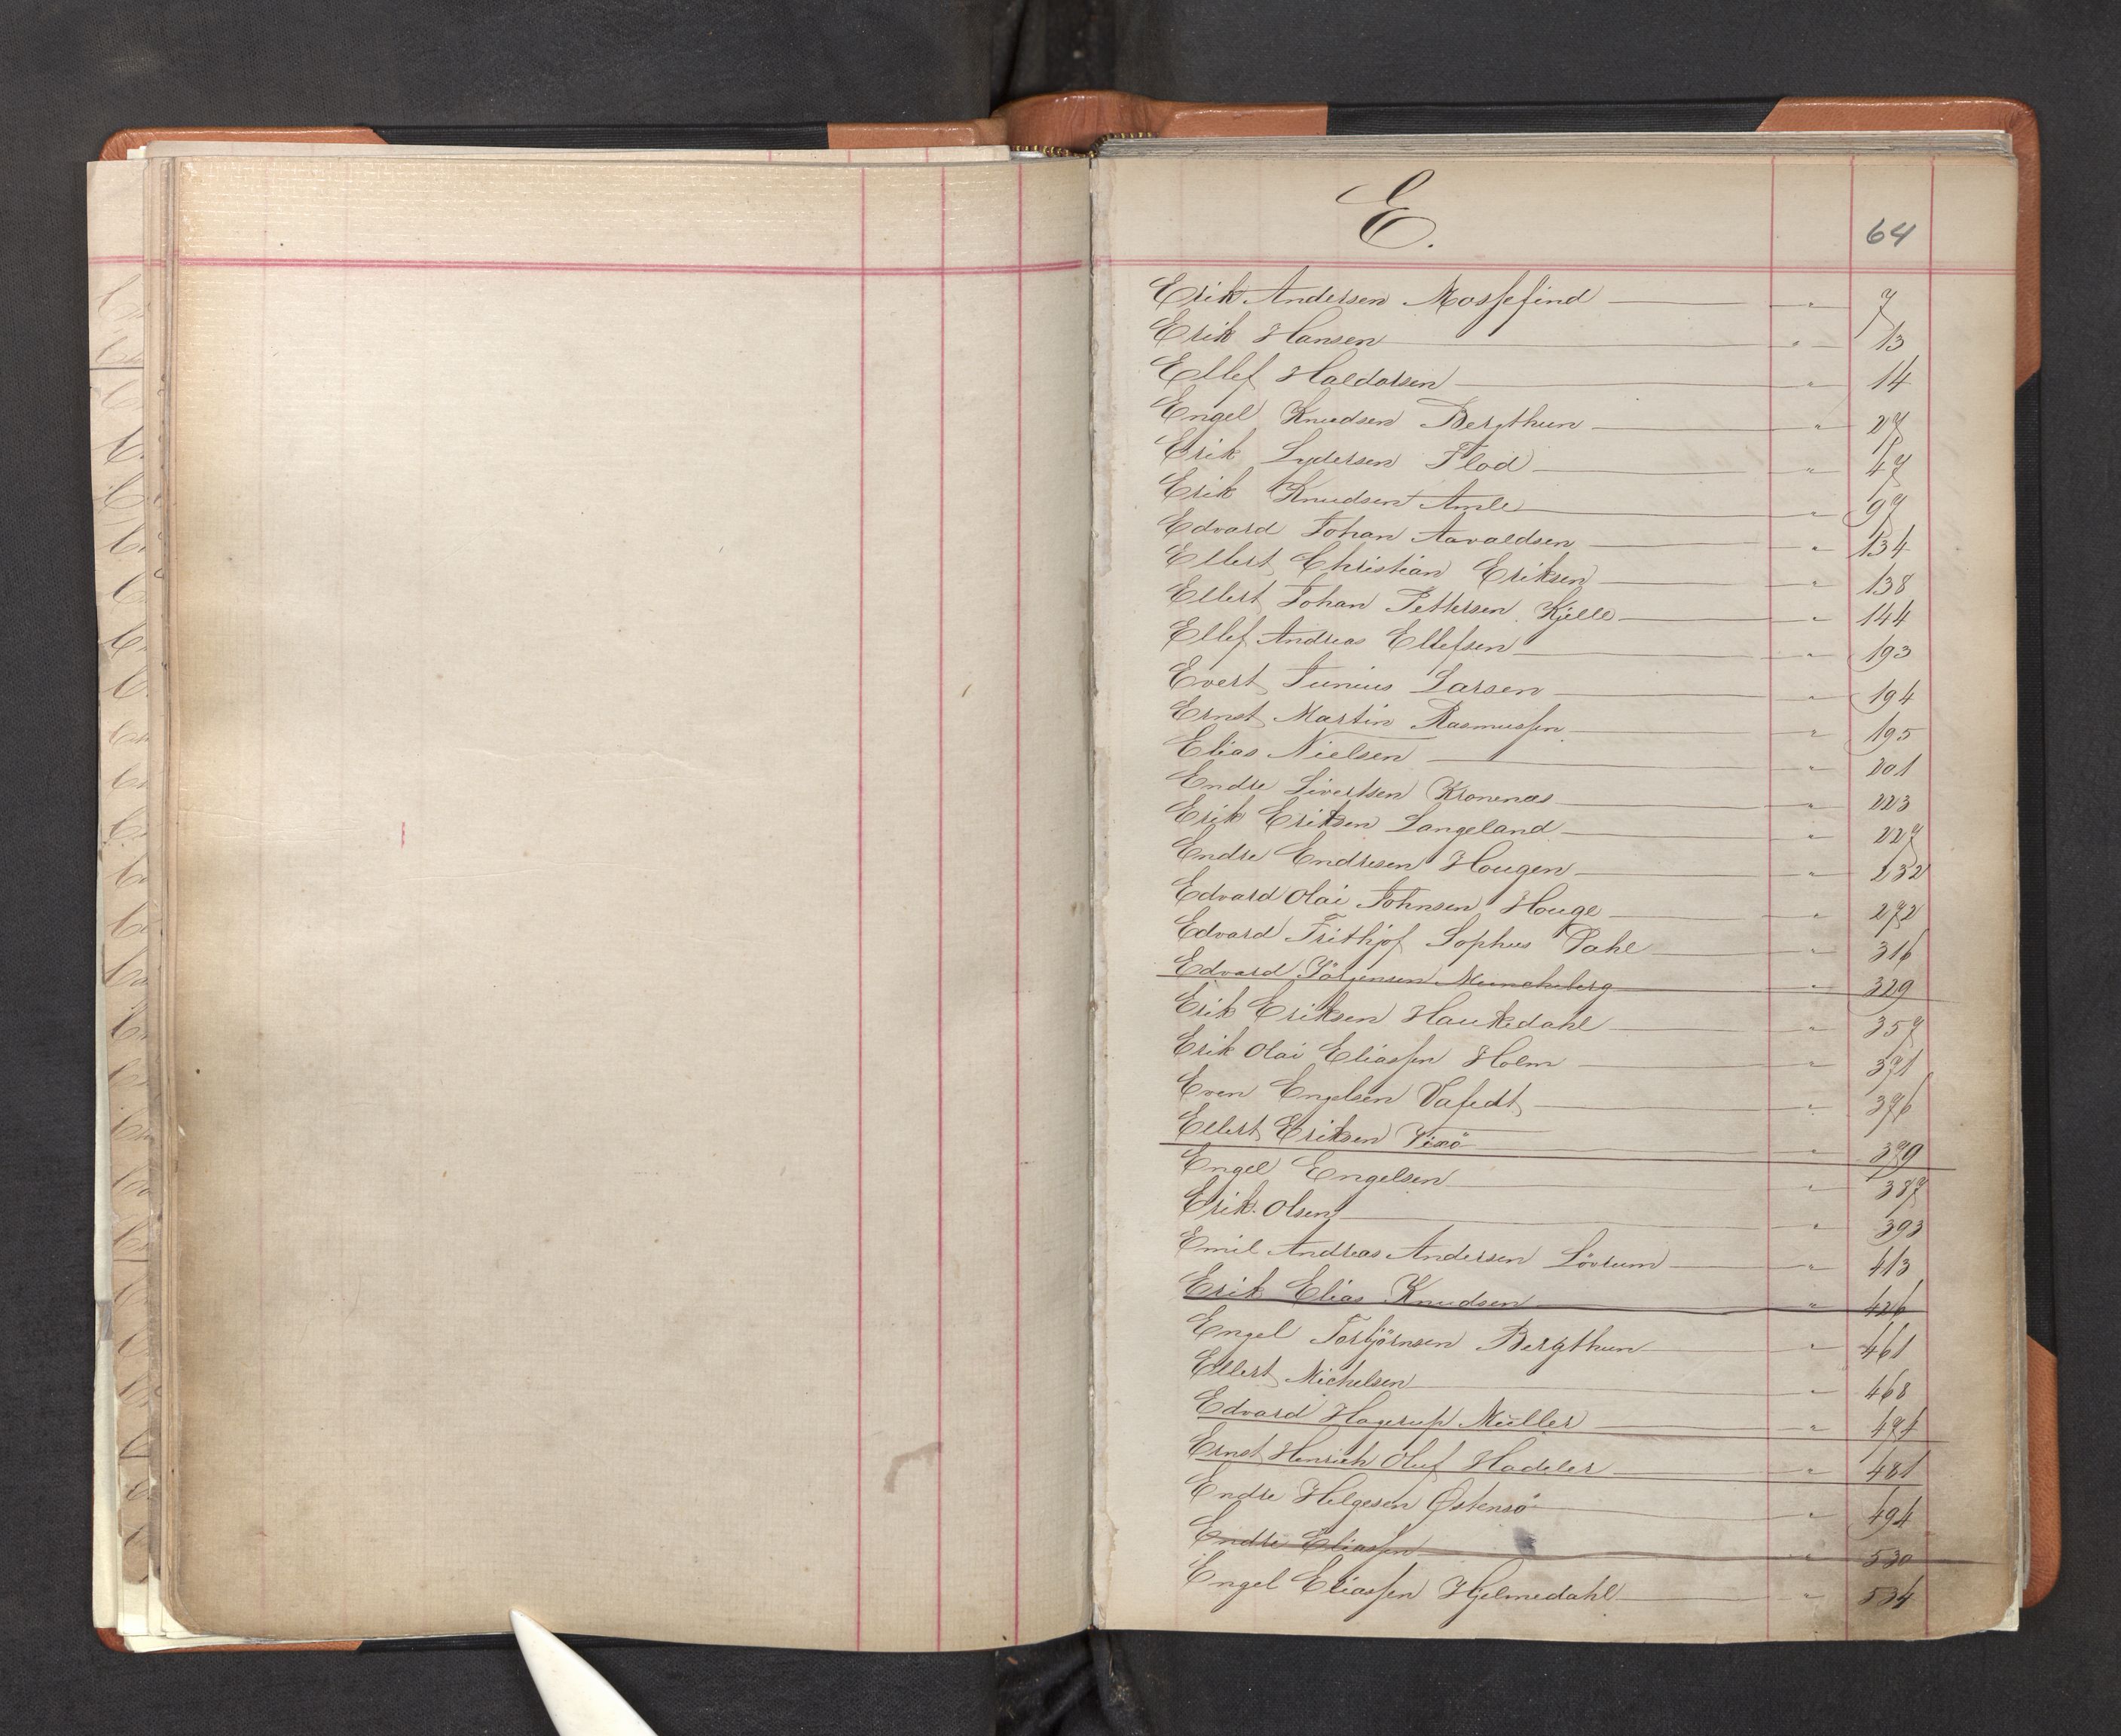 E.
64
Erik Andersen Mossefind " 7
Erik Hansen " 13
Ellef Haldorsen " 14
Engel Knudsen Bergthun " 27
Erik Lydersen Flod " 47
Erik Knudsen Amle " 97
Edvard Johan Aavaldsen " 134
Ellert Christian Eriksen " 138
Ellert Johan Pettersen Kjelle " 144
Ellef Andreas Ellefsen " 193
Evert Junius Larsen " 194
Ernst Martin Rasmussen " 195
Elias Nielsen " 201
Endre Sivertsen Kronenæs " 223
Erik Eriksen Langeland " 227
Endre Endresen Hougen " 232
Edvard Olai Johnsen Houge " 272
Edvard Frithjof Sophus Dahl " 316
Edvard Jörgensen " 329
Erik Eriksen Haukedahl " 357
Erik Olai Eliassen Holm " 371
Even Engelsen " 376
Ellert Eriksen Vixö " 379
Engel Engelsen " 387
Erik Olsen " 393
Emil Andreas Andersen Lövrum " 413
Erik Elias Knudsen " 426
Engel Torbjörnsen Bergthun " 461
Ellert Michelsen " 468
Edvard Hagerup Müller " 474
Ernst Henrich Oluf Hadeler " 481
Endre Helgesen Østensö " 494
Endre Eliassen " 530
Engel Eliassen Hjelmedahl " 534